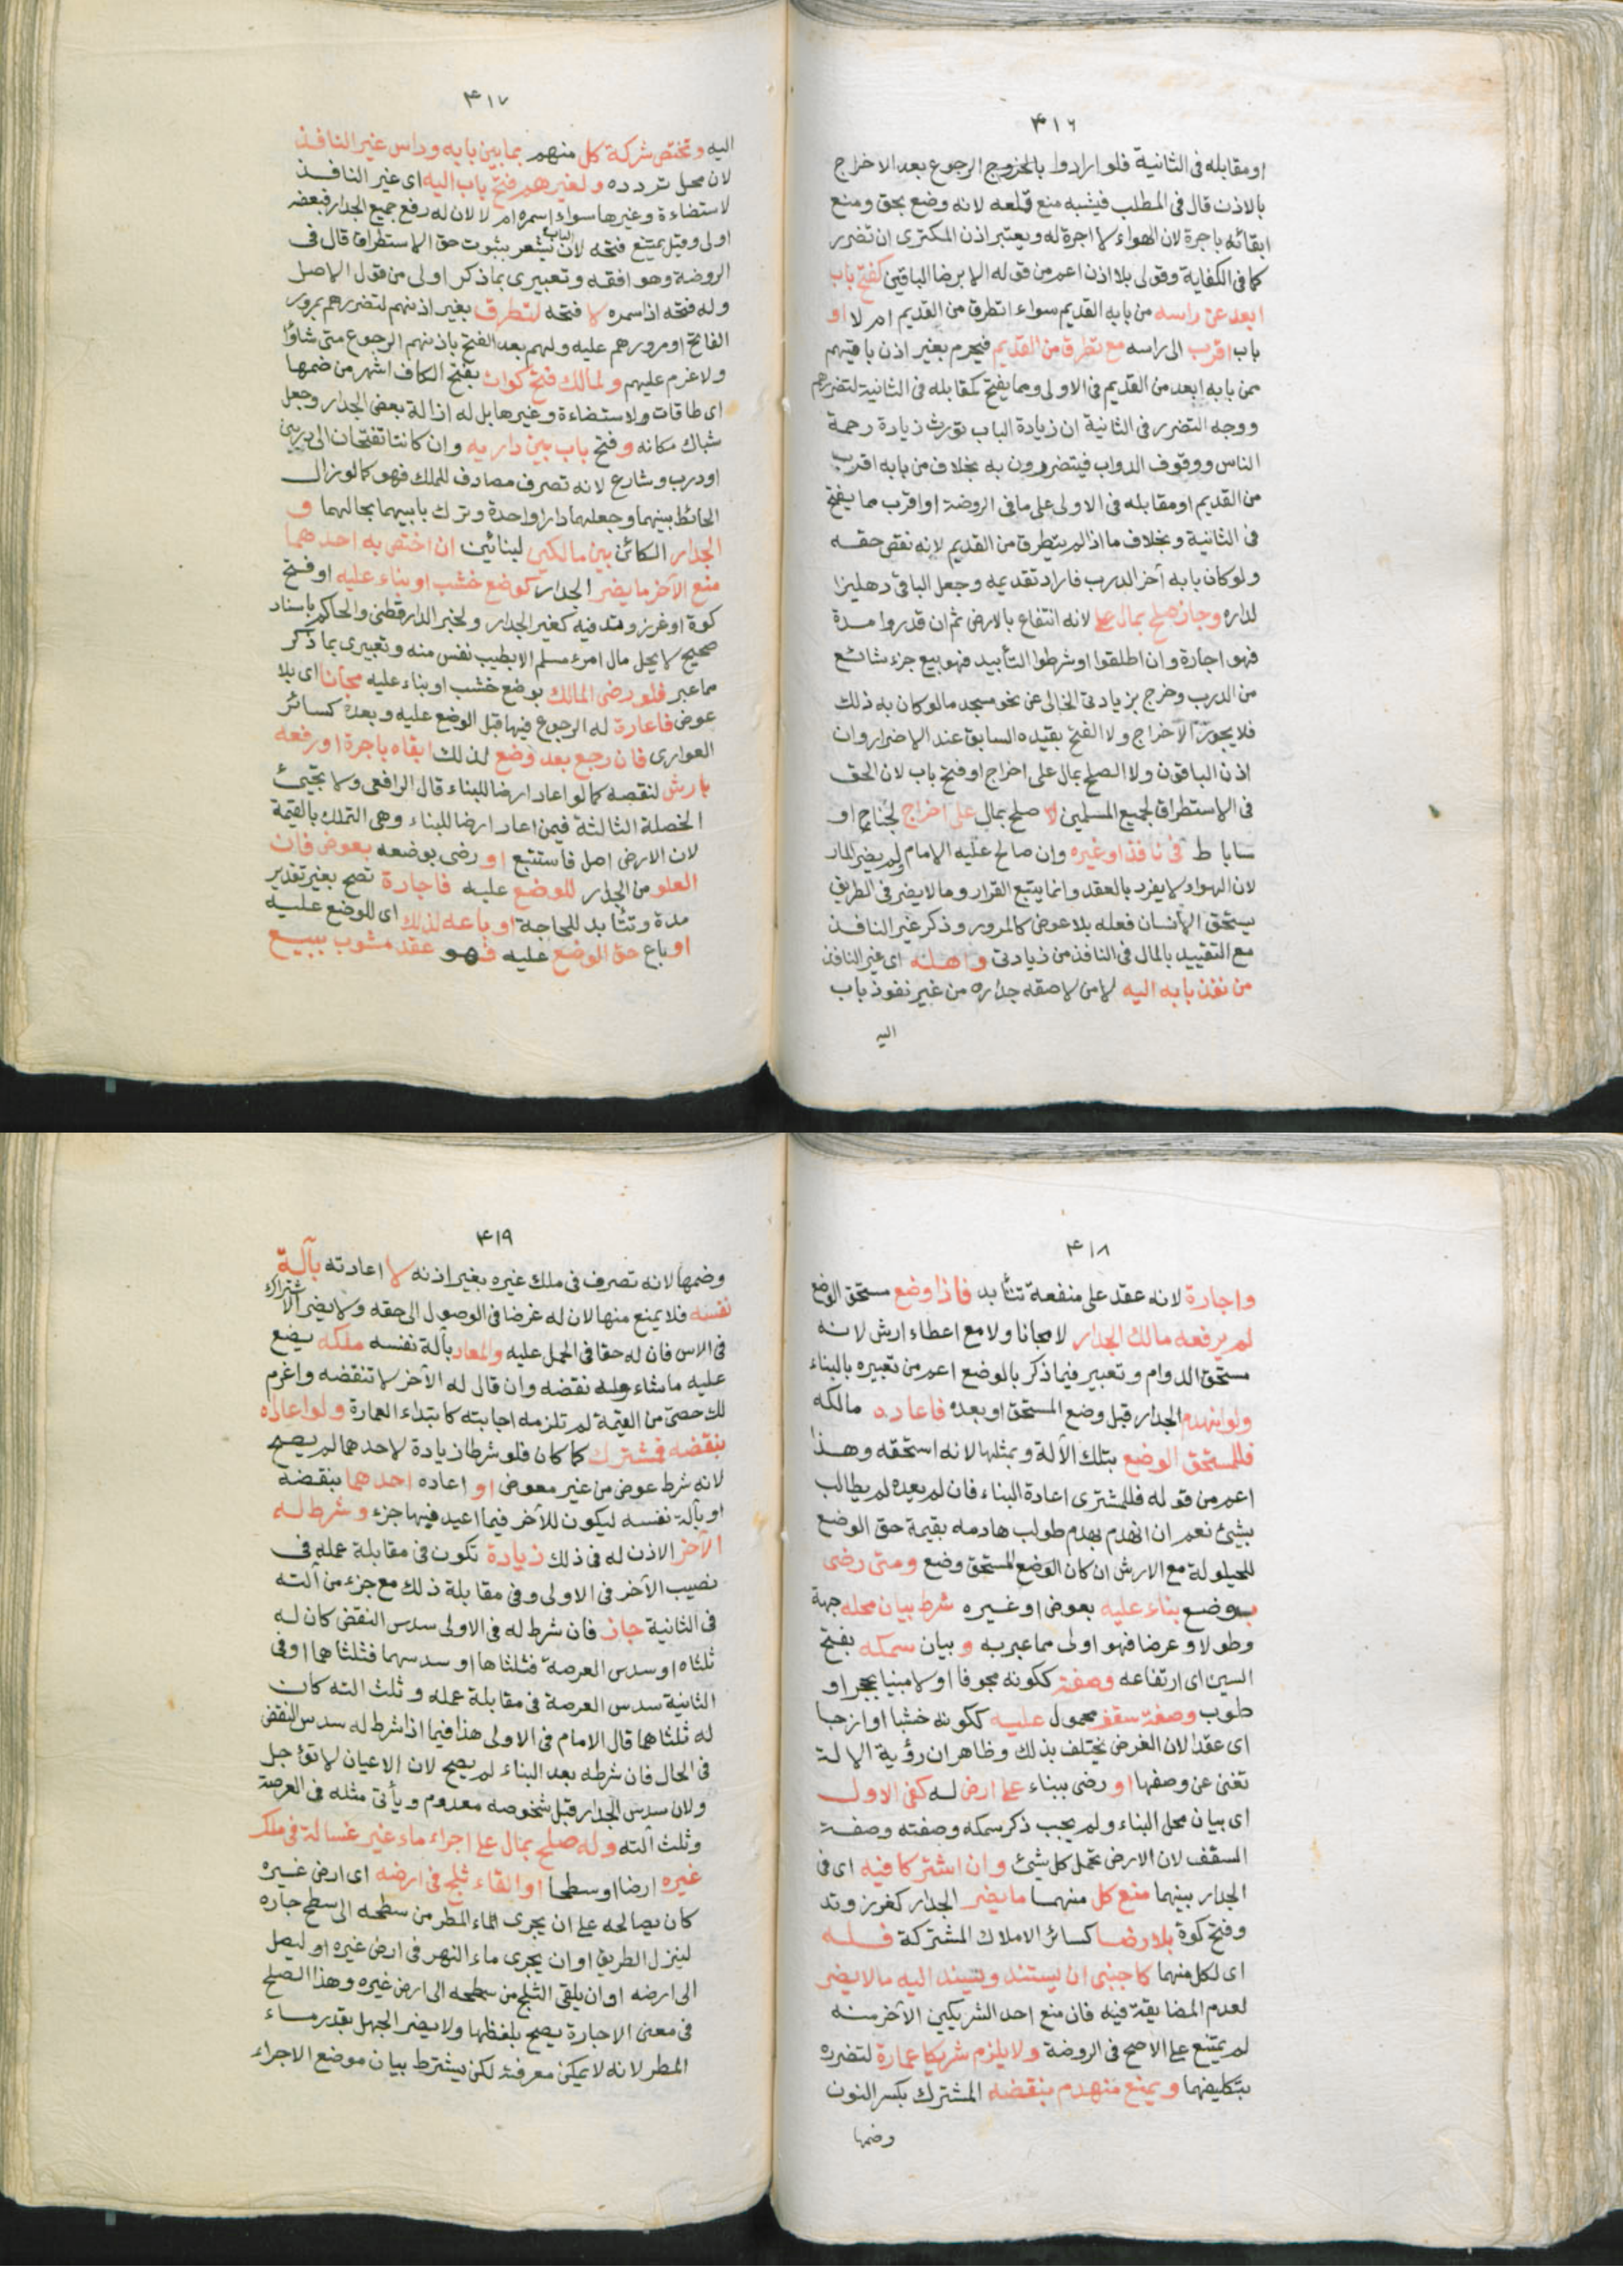 ٤١٦
او مقابله فى الثانية فلو ارادوا بالخروج الرجوع بعد الاخراج
بالاذن قال فى المطلب فيشبه منع قلعه لانه وضع بحق ومنع
ابقائه باجرة لان الهواء لا اجرة له ويعتبر اذن المكترى ان تضرر
كما فى الكفاية وقولى بلا اذن اعم من قوله الا برضا الباقين كفتح باب
ابعد عن راسه من بابه القديم سواء اتطرق من القديم ام لا او
باب اقرب الى راسه مع تطرق من القديم فيحرم بغير اذن باقيهم
ممن بابه ابعد من القديم فى الاولى ومما يفتح كمقابله فى الثانية لتضررهم
ووجه التضرر فى الثانية ان زيادة الباب تورث زيادة رحمة
الناس ووقوف الدواب فيتضررون به بخلاف من بابه اقرب
من القديم او مقابله فى الاولى على ما فى الروضة او اقرب مما يفتح
فى الثانية وبخلاف ما اذا لم يتطرق من القديم لانه نقص حقه
ولو كان بابه آخر الدرب فاراد تقديمه وجعل الباقى دهليزا
لداره وجاز صلح بمال على لانه انتفاع بالارض ثم ان قدروا مدة
فهو اجارة وان اطلقوا او شرطوا التأبيد فهو بيع جزء شائع
من الدرب وخرج بزيادتى الخالى عن نحو مسجد ما لو كان به ذلك
فلا يجوز الاخراج ولا الفتح بقيده السابق عند الاضرار وان
اذن الباقون ولا الصلح بمال على اخراج او فتح باب لان الحق
فى الاستطراق لجميع المسلمين لا صلح بمال على اخراج لجناح او
ساباط فى نافذ او غيره وان صالح عليه الامام ولم يضر المار
لان الهواء لا يفرد بالعقد وانما يتبع القرار وما لا يضر فى الطريق
يستحق الانسان فعله بلا عوض كالمرور وذكر غير النافذ
مع التقييد بالمال فى النافذ من زيادتى واهله اى غير النافذ
من نفذ بابه اليه لا من لاصقه جداره من غير نفوذ باب
اليه
٤١٧
اليه وتختص شركة كل منهم بما بين بابه وراس غير النافذ
لان محل تردده ولغيرهم فتح باب اليه اى غير النافذ
لاستضاءة وغيرها سواء اسمره ام لا لان له رفع جميع الجدار فبعضه
اولى وقيل يمتنع فتحه لان الباب يشعر بثبوت حق الاستطراق قال فى
الروضة وهو افقه وتعبيرى بما ذكر اولى من قول الاصل
وله فتحه اذا سمره لا فتحه لتطرق بغير اذنهم لتضررهم بمرور
الفاتح او مرورهم عليه ولهم بعد الفتح باذنهم الرجوع متى شاؤا
ولا غرم عليهم ولمالك فتح كوات بفتح الكاف اشهر من ضمها
اى طاقات ولاستضاءة وغيرها بل له ازالة بعض الجدار وجعل
شباك مكانه وفتح باب بين داريه وان كانتا تفتحان الى دربين
او درب وشارع لانه تصرف مصادف للملك فهو كما لو زال
الحائط بينهما وجعلهما دارا واحدة وترك بابيهما بحالهما و
الجدار الكائن بين مالكين لبنائين ان اختص به احدهما
منع الآخر ما يضر الجدار كوضع خشب او بناء عليه او فتح
كوة او غرز وتد فيه كغير الجدار ولخبر الدارقطنى والحاكم باسناد
صحيح لا يحل مال امرء مسلم الا بطيب نفس منه وتعبيرى بما ذكر
مما عبر فلو رضى المالك بوضع خشب او بناء عليه مجانا اى بلا
عوض فاعارة له الرجوع فيها قبل الوضع عليه وبعده كسائر
العوارى فان رجع بعد وضع لذلك ابقاه باجرة او رفعه
بارش لنقصه كما لو اعاد ارضا للبناء قال الرافعى ولا تجيئ
الخصلة الثالثة فيمن اعار ارضا للبناء وهى التملك بالقيمة
لان الارض اصل فاستتبع او رضى بوضعه بعوض فان
العلو من الجدار للوضع عليه فاجارة تصح بغير تقدير
مدة وتتأبد للحاجة او باعه لذلك اى للوضع عليه
او باع حق الوضع عليه فهو عقد مشوب ببيع
٤١٨
واجارة لانه عقد على منفعة تتأبد فاذا وضع مستحق الوضع
لم يرفعه مالك الجدار لا مجانا ولا مع اعطاء ارش لانه
مستحق الدوام وتعبير فيما ذكر بالوضع اعم من تعبيره بالبناء
ولو انهدم الجدار قبل وضع المستحق او بعده فاعاده مالكه
فللمستحق الوضع بتلك الآلة وبمثلها لانه استحقه وهذا
اعم من قوله فللمشترى اعادة البناء فان لم يعده لم يطالب
بشئ نعم ان انهدم بهدم طولب هادمه بقيمة حق الوضع
للحيلولة مع الارش ان كان الوضع المستحق وضع ومتى رضى
بوضع بناء عليه بعوض او غيره شرط بيان محله جهة
وطولا وعرضا فهو اولى مما عبر به و بيان سمكه بفتح
السين اى ارتفاعه وصفته ككونه مجوفا او لا مبنيا بحجر او
طوب وصفة سقف محمول عليه ككونه خشبا او ازجا
اى عقدا لان الغرض يختلف بذلك وظاهر ان رؤية الالة
تغنى عن وصفها او رضى ببناء على ارض له كفى الاول
اى بيان محل البناء ولم يجب ذكر سمكه وصفته وصفة
السقف لان الارض تحمل كل شئ وان اشتركا فيه اى فى
الجدار بينهما منع كل منهما ما يضر الجدار كغرز وتد
وفتح كوة بلا رضا كسائر الاملاك المشتركة فله
اى لكل منهما كاجنبى ان يستند ويسند اليه ما لا يضر
لعدم المضايقة فيه فان منع احد الشريكين الآخر منه
لم يمتنع على الاصح فى الروضة ولا يلزم شريكا عمارة لتضرره
بتكليفهما ويمنع منهدم بنقضه المشترك بكسر النون
وضمها
٤١٩
وضمها لانه تصرف فى ملك غيره بغير اذنه لا اعادته بآلة
نفسه فلا يمنع منها لان له غرضا فى الوصول الى حقه ولا يضر الاشتراك
فى الاس فان له حقا فى الحمل عليه والمعاد بآلة نفسه ملكه يضع
عليه ما شاء وله نقضه وان قال له الآخر لا تنقضه واغرم
لك حصتى من القيمة لم تلزمه اجابته كابتداء العمارة ولو اعاداه
بنقضه فمشترك كما كان فلو شرطا زيادة لاحدهما لم يصح
لانه شرط عوض من غير معوض او اعاده احدهما بنقضه
او بآلة نفسه ليكون للآخر فيما اعيد فيها جزء وشرط له
الآخر الاذن له فى ذلك زيادة تكون فى مقابلة عمله فى
نصيب الآخر فى الاولى وفى مقابلة ذلك مع جزء من آلته
فى الثانية جاز فان شرط له فى الاولى سدس النقض كان له
ثلثاه او سدس العرصة فثلثاها او سدسهما فثلثاهما او فى
الثانية سدس العرصة فى مقابلة عمله وثلث آلته كان
له ثلثاهما قال الامام فى الاولى هذا فيما اذا شرط له سدس النقض
فى الحال فان شرطه بعد البناء لم يصح لان الاعيان لا تؤجل
ولان سدس الجدار قبل شخوصه معدوم ويأتى مثله فى العرصة
وثلث آلته وله صلح بمال على اجراء ماء غير غسالة فى ملك
غيره ارضا او سطحا او القاء ثلج فى ارضه اى ارض غيره
كان يصالحه على ان يجرى الماء المطر من سطحه الى سطح جاره
لينزل الطريق او ان يجرى ماء النهر فى ارض غيره او ليصل
الى ارضه او ان يلقى الثلج من سطحه الى ارض غيره وهذا الصلح
فى معنى الاجارة يصح بلفظها ولا يضر الجهل بقدر ماء
المطر لانه لا يمكن معرفته لكن يشترط بيان موضع الاجراء